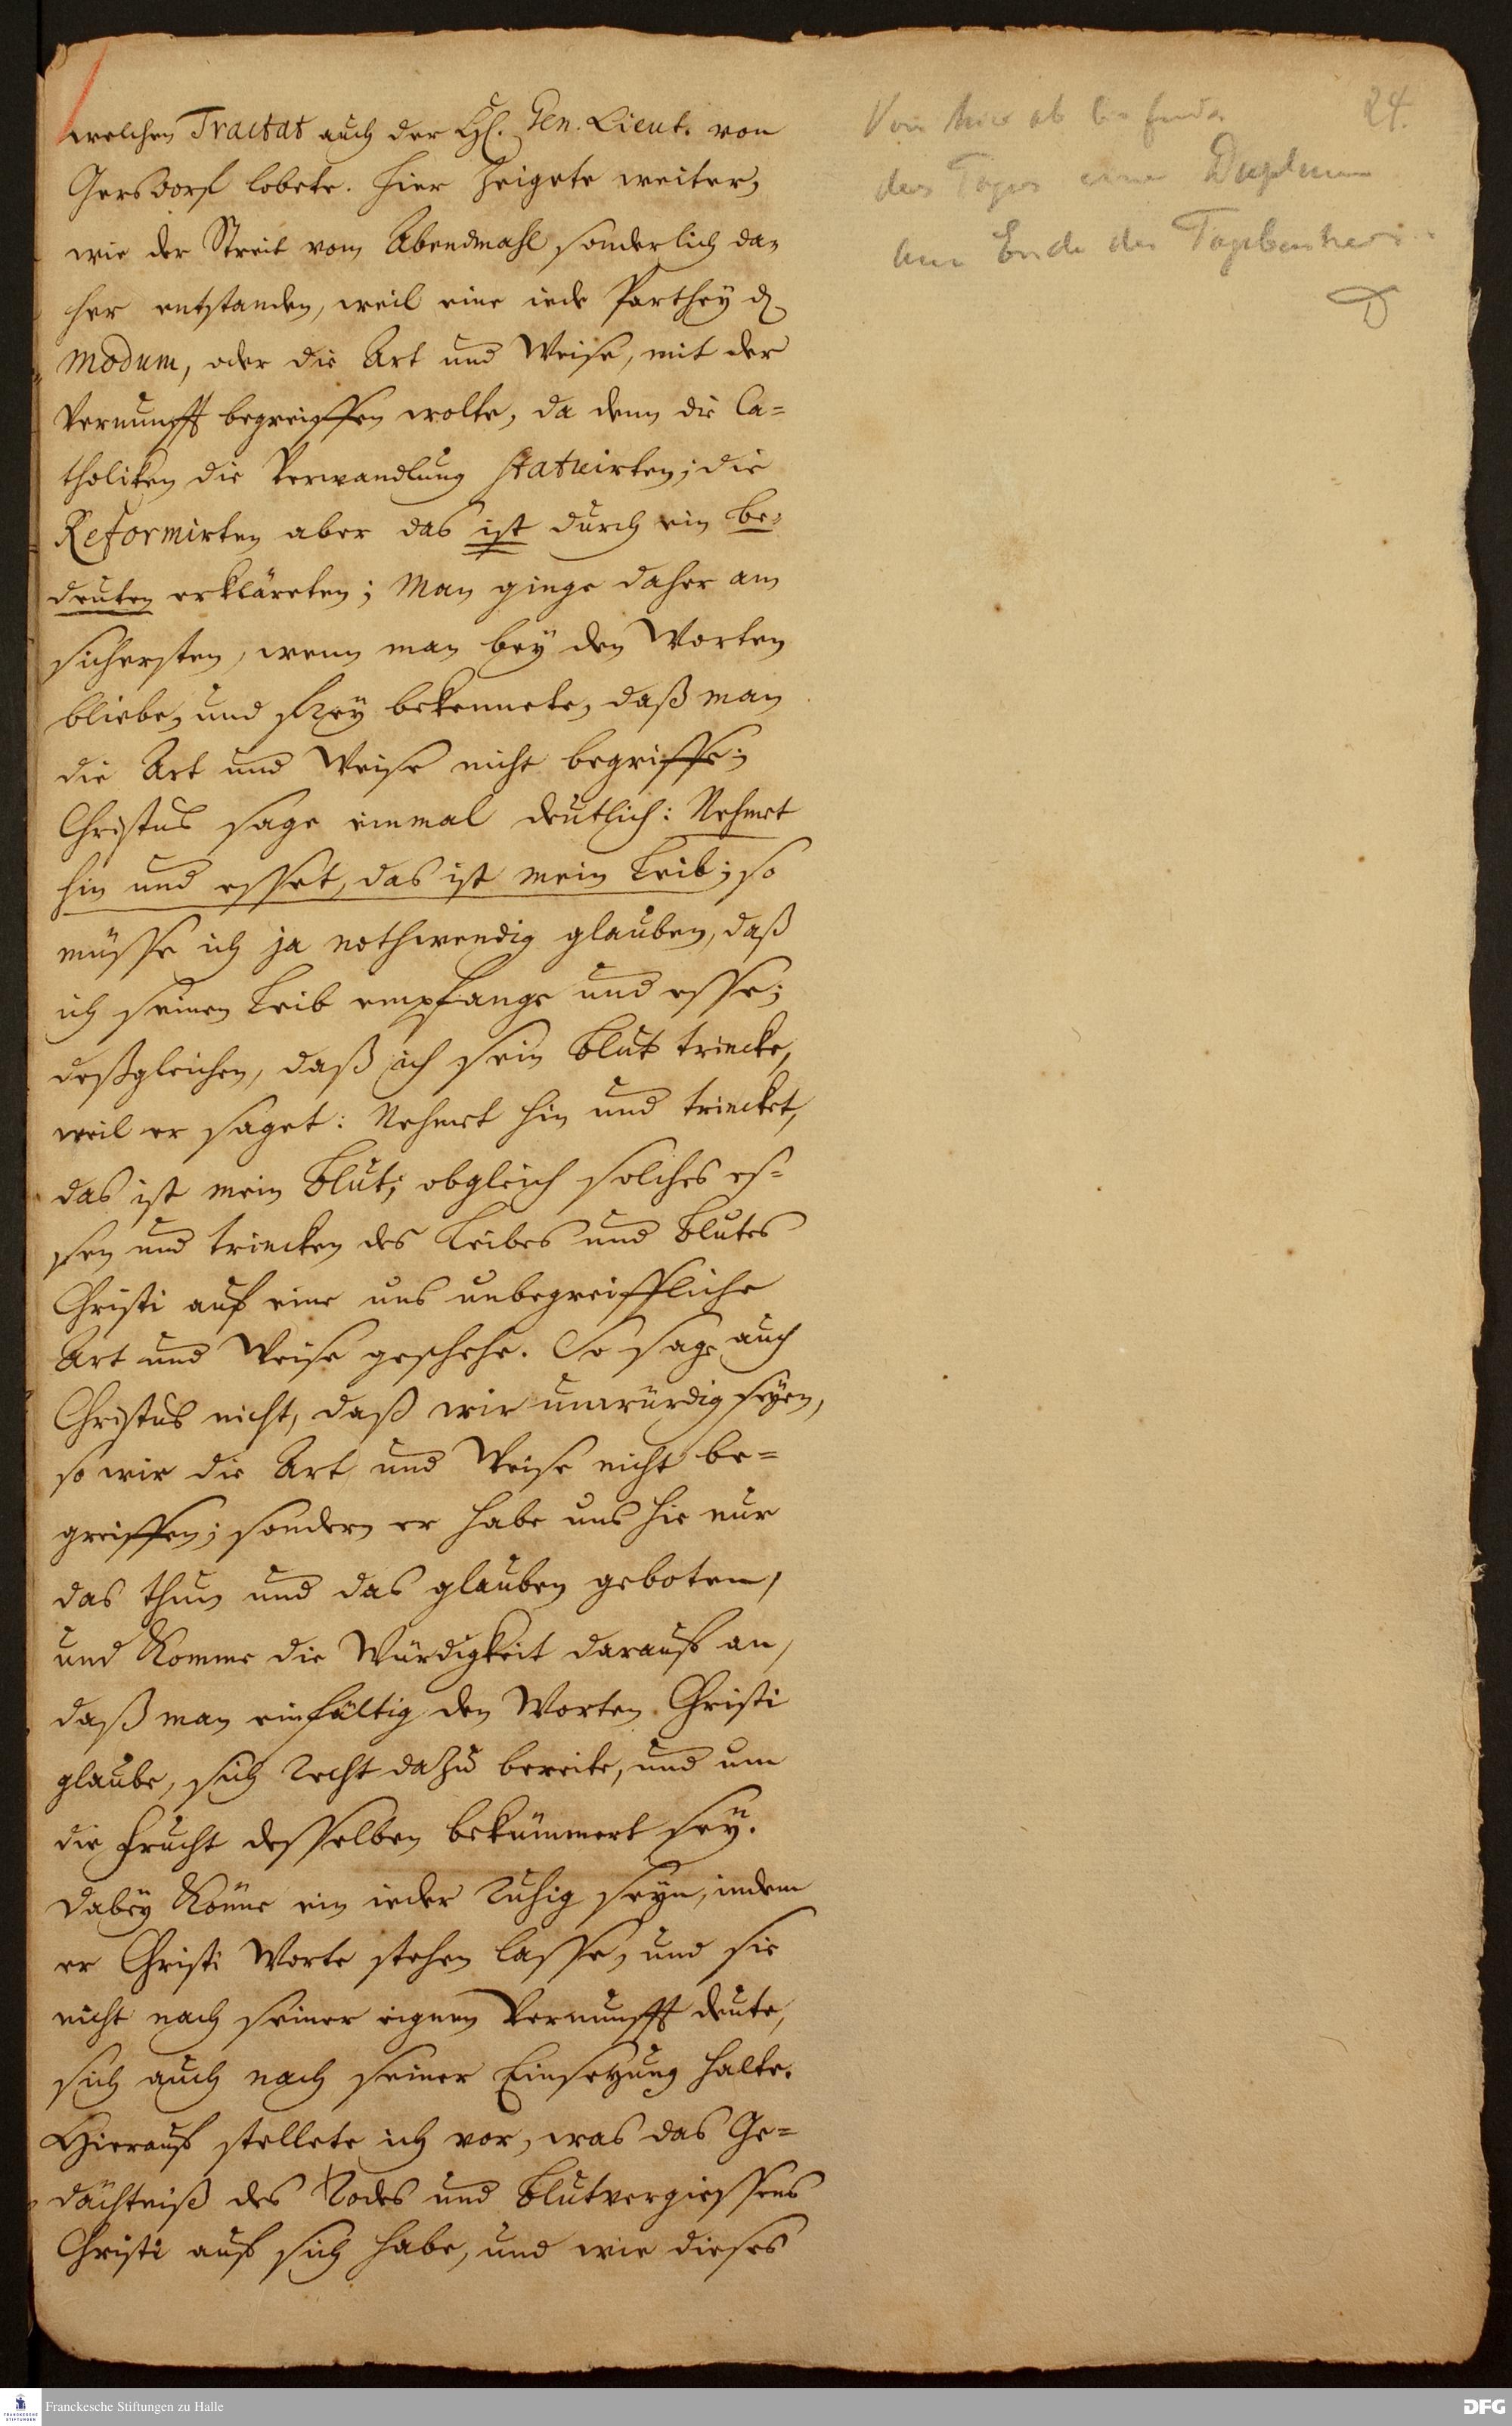 welchen Tractat auch der H. Gen. Lieut. von
Gersdorf lobete. Hier zeigete weiter,
wie der Streit vom Abendmahl sonderlich da-
her entstanden, weil eine iede Parthey d
modum, oder die Art und Weise, mit der
Vernunfft begreiffen wolte, da denn die Ca=
tholiken die Verwandlung statuirten; die
Reformirten aber das ist durch ein be=
deuten erkläreten; Man ginge daher am
sichersten, wenn man bey den Worten
bliebe, und frey bekennete, daß man
die Art und Weise nicht begriffe;
Christus sage einmal deutlich: Nehmet
hin und esset, das ist mein Leib; so
müsse ich ja nothwendig glauben, daß
ich seinen Leib empfange und esse;
deßgleichen, daß ich sein Blut trincke,
weil er saget: Nehmet hin und trincket,
das ist mein Blut; obgleich solches es=
sen und trincken des Leibes und Blutes
Christi auf eine uns unbegreiffliche
Art und Weise geschehe. So sage auch
Christus nicht, daß wir unwürdig seyen,
so wir die Art und Weise nicht be=
greiffen; sondern er habe uns hie nur
das thun und das glauben geboten,
und komme die Würdigkeit darauf an,
daß man einfältig den Worten Christi
glaube, sich recht dazu bereite, und um
die Frucht desselben bekümmert sey.
Dabey könne ein ieder ruhig seyn, indem
er Christi Worte stehen lasse, und sie
nicht nach seiner eignen Vernunfft deute,
sich auch nach seiner Einsetzung halte.
Hierauf stellete ich vor, was das Ge=
dächtniß des Todes und Blutvergiessens
Christi auf sich habe, und wie dieses
24.
Von hier ab befindet
des Tages eine Duplum
am Ende des Tagebuches
Franckesche Stiftungen zu Halle
DFG